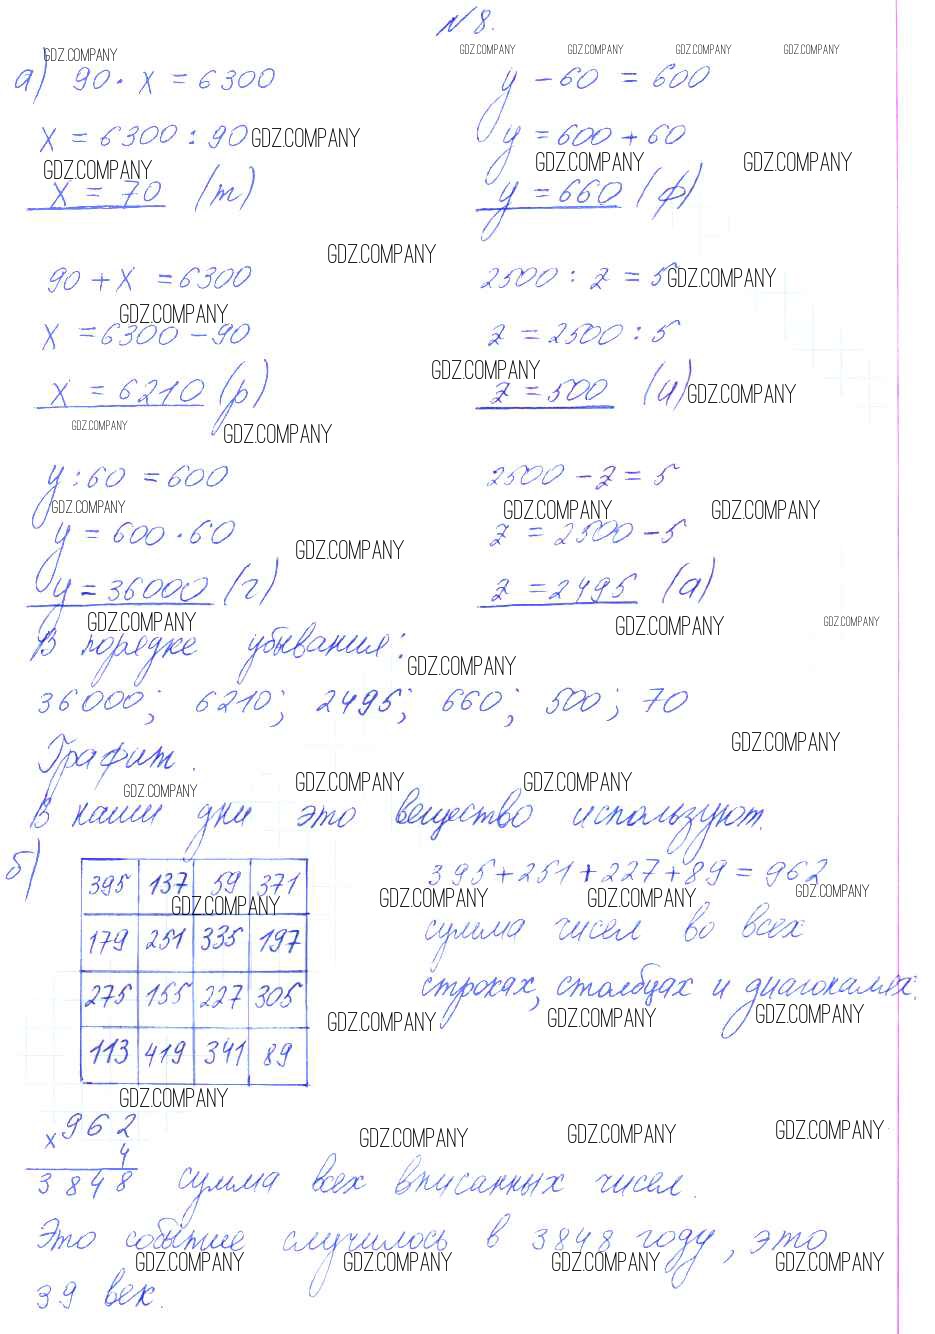 № 8.
а) 90 · x = 6300
x = 6300 : 90
x = 70 (т)
90 + x = 6300
x = 6300 - 90
x = 6210 (р)
y : 60 = 600
y = 600 · 60
y = 36000 (г)
y - 60 = 600
y = 600 + 60
y = 660 (ф)
2500 : z = 5
z = 2500 : 5
z = 500 (и)
2500 - z = 5
z = 2500 - 5
z = 2495 (а)
В порядке убывания:
36000; 6210; 2495; 660; 500; 70
Графит.
В наши дни это вещество используют.
б)
395 137 59 371
179 251 335 197
275 155 227 305
113 419 341 89
395 + 251 + 227 + 89 = 962
сумма чисел во всех
строках, столбцах и диагоналях.
x 962
4
3848 сумма всех вписанных чисел.
Это событие случилось в 3848 году, это
39 век.
GDZ.COMPANY